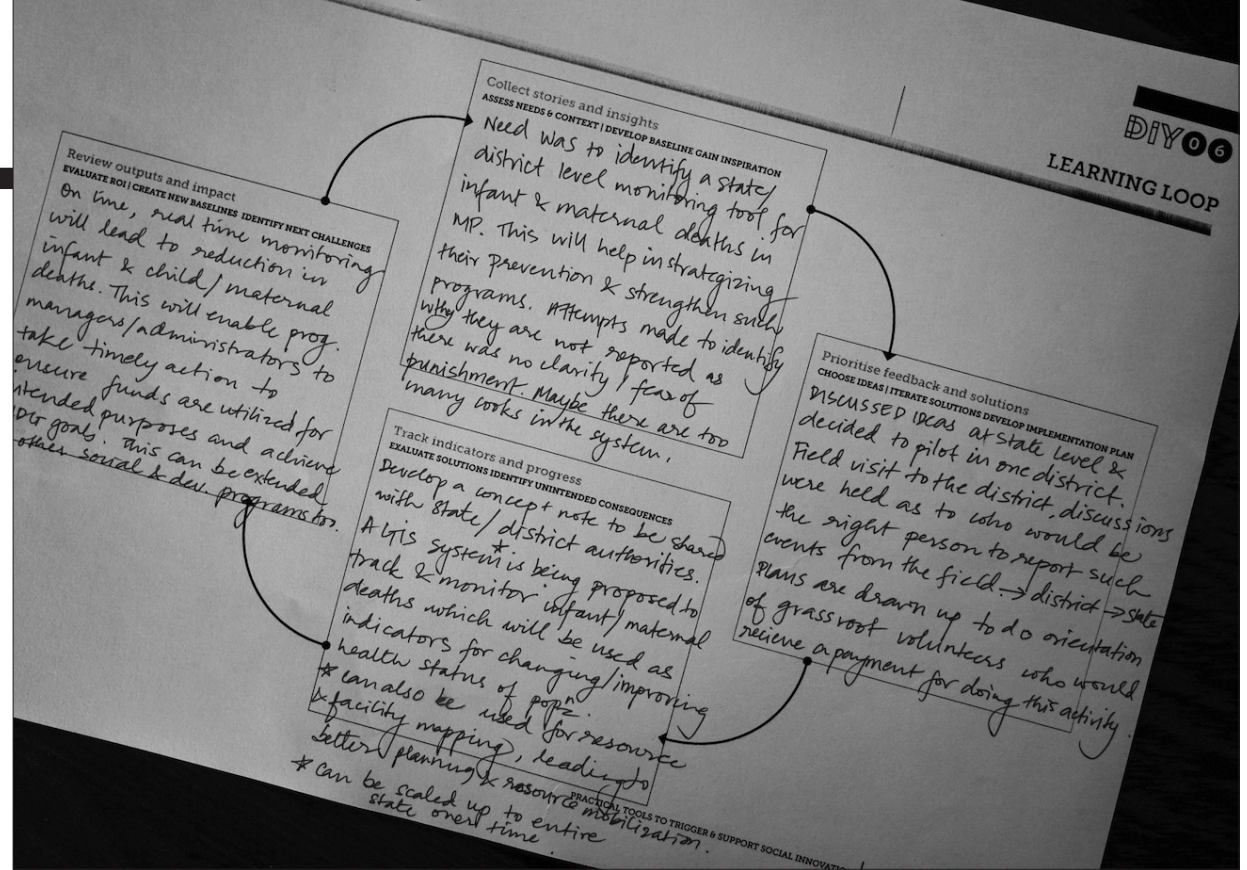 DIY06
LEARNING LOOP
Collect stories and insights
ASSESS NEEDS & CONTEXT | DEVELOP BASELINE GAIN INSPIRATION
Need was to identify a state/
district level monitoring tool for
infant & maternal deaths in
MP. This will help in strategizing
their prevention & strengthen such
programs. Attempts made to identify
why they are not reported as
there was no clarity / fear of
punishment. Maybe there are too
many cooks in the system.
Prioritise feedback and solutions
CHOOSE IDEAS | ITERATE SOLUTIONS DEVELOP IMPLEMENTATION PLAN
DISCUSSED IDEAS at State level &
decided to pilot in one district.
Field visit to the district, discussions
were held as to who would be
the right person to report such
events from the field → district → state
Plans are drawn up to do orientation
of grassroot volunteers who would
recieve a payment for doing this activity.
Track indicators and progress
EXALUATE SOLUTIONS IDENTIFY UNINTENDED CONSEQUENCES
Develop a concept note to be shared
with State/ district authorities.
A GIS system* is being proposed to
track & monitor infant/maternal
deaths which will be used as
indicators for changing/improving
health status of popn.
* can also be used for resource
& facility mapping, leading to
better planning & resource mobilization.
* can be scaled up to entire
state over time.
Review outputs and impact
EVALUATE ROI | CREATE NEW BASELINES IDENTIFY NEXT CHALLENGES
On time, real time monitoring
will lead to reduction in
infant & child/ maternal
deaths. This will enable prog.
managers/administrators to
take timely action to
ensure funds are utilized for
ntended purposes and achieve
goals. This can be extended
other social & dev. programs too.
PRACTICAL TOOLS TO TRIGGER & SUPPORT SOCIAL INNOVATIO